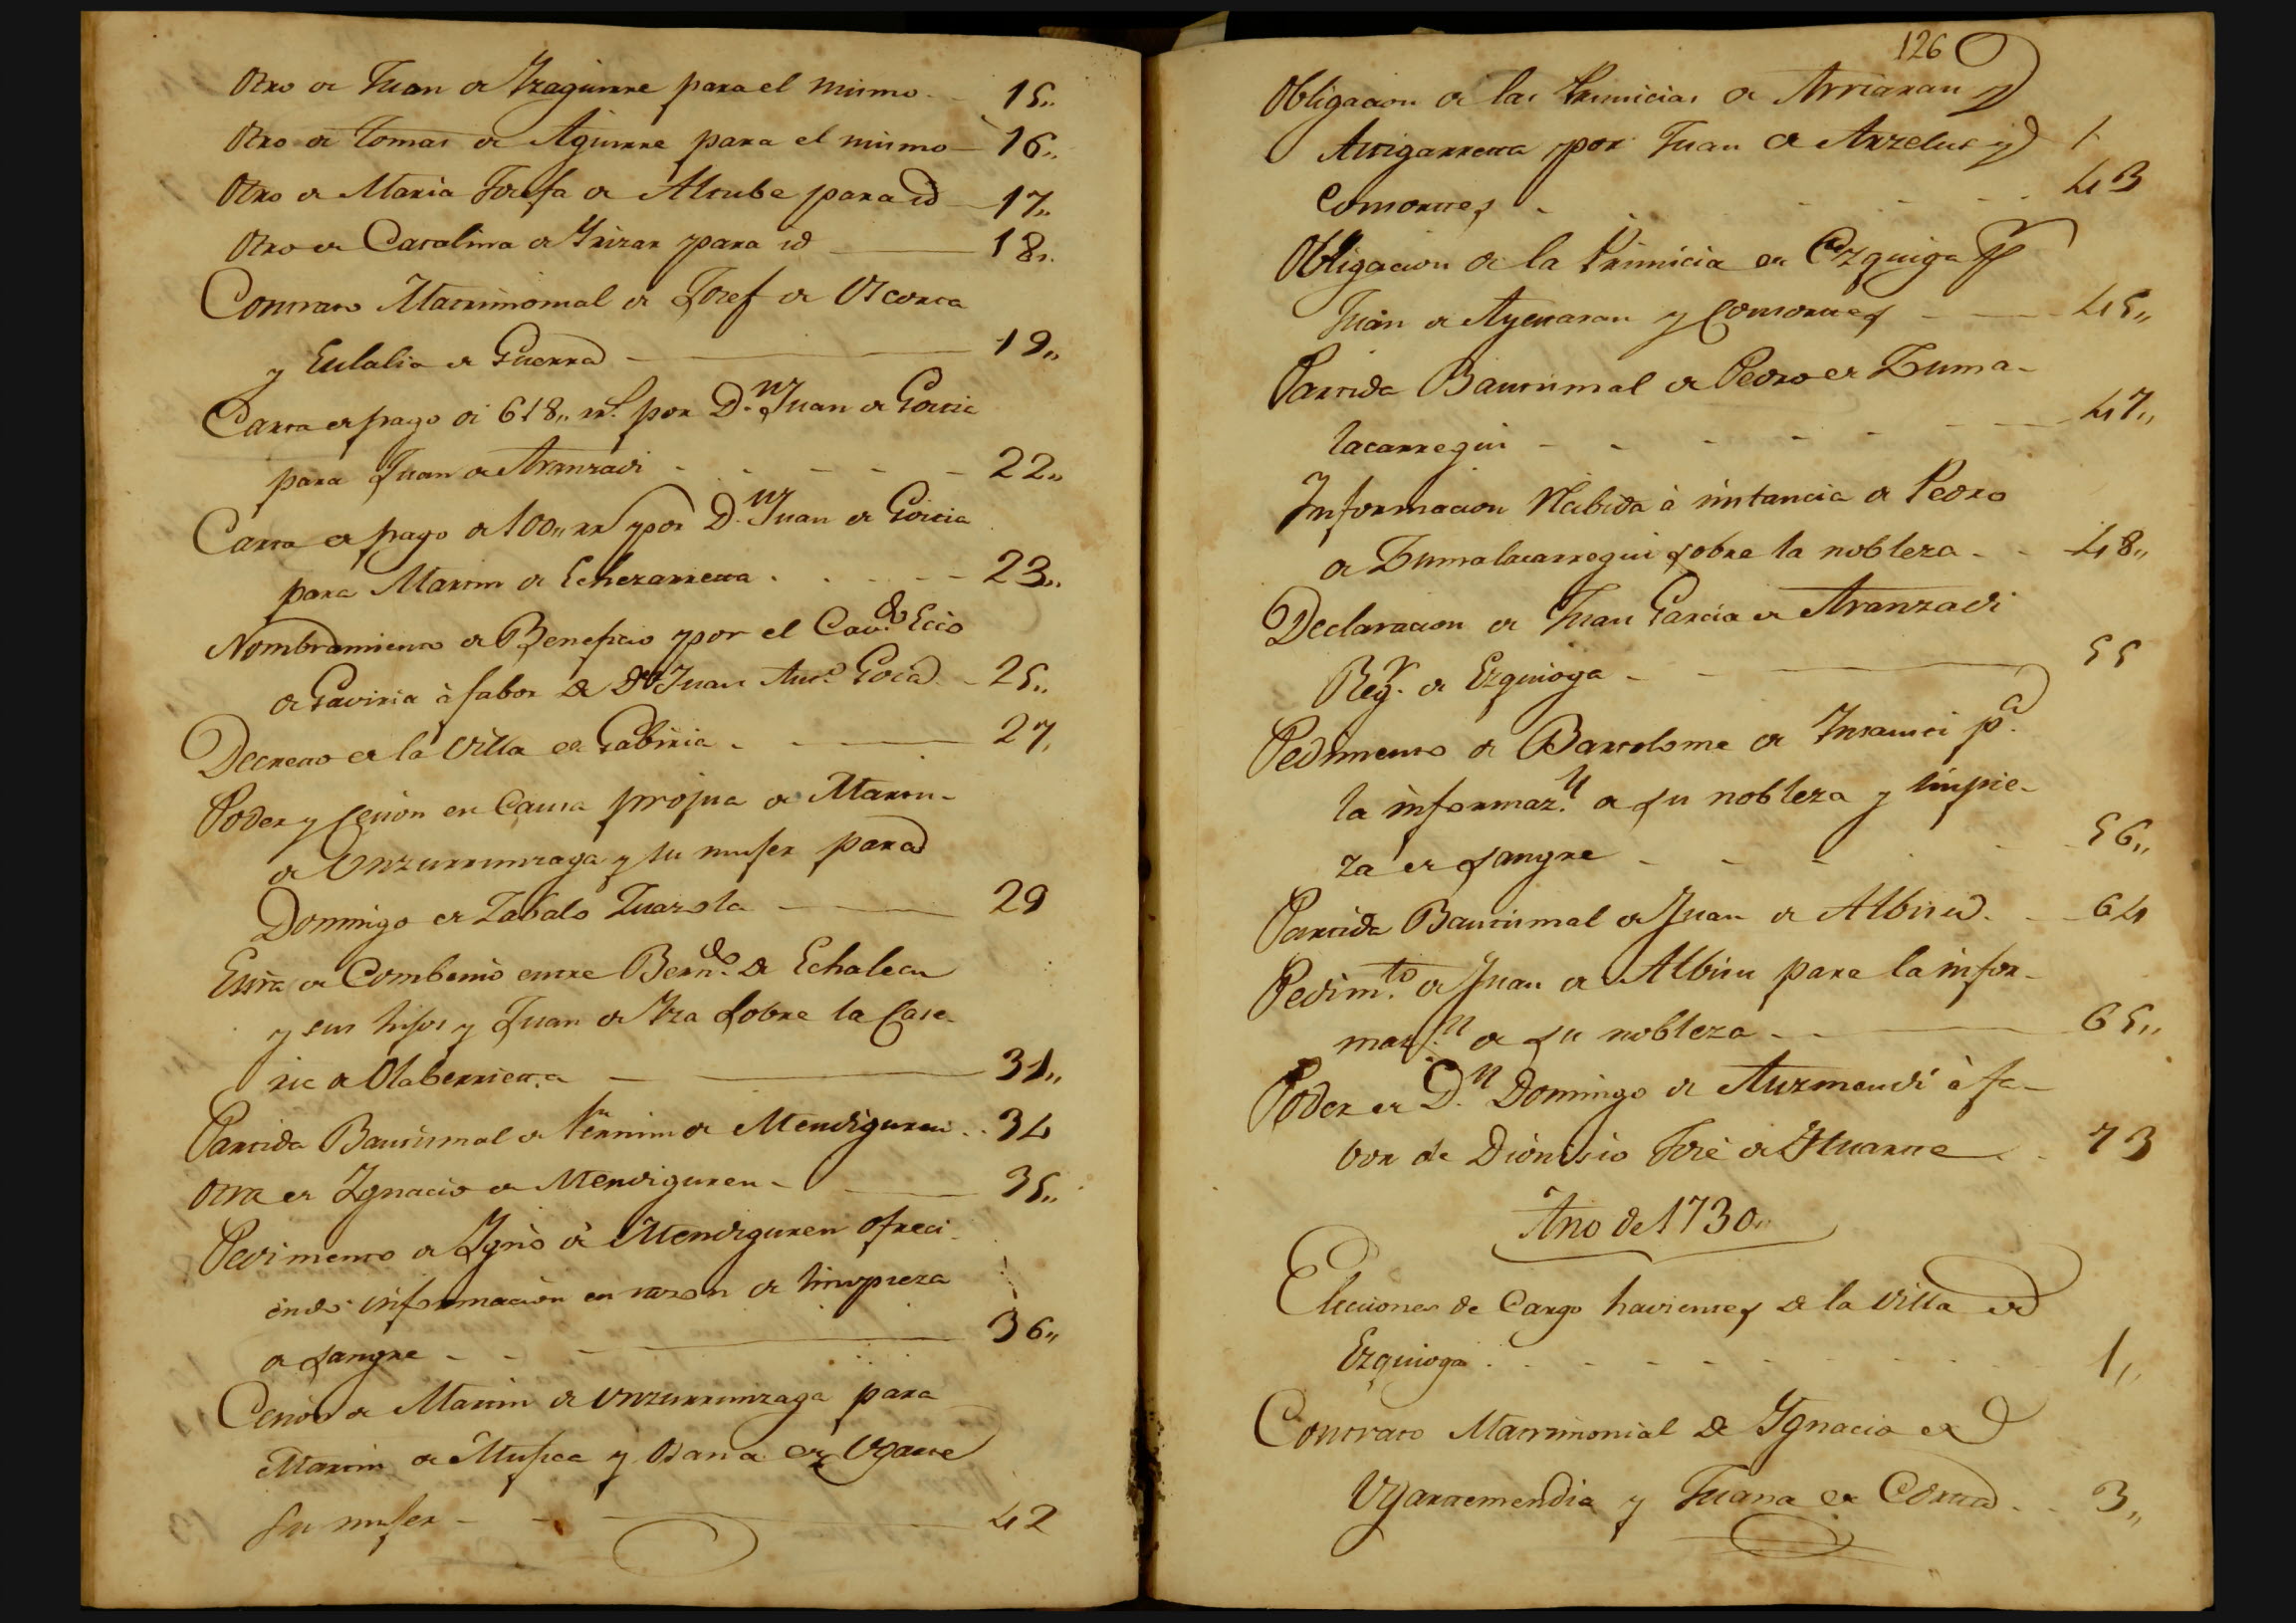 Otro de Juan de Yzaguirre para el mismo - 15,,
Otro de Tomas de Aguirre para el mismo - 16,,
Otro de Maria Josefa de Alcube para id - 17,,
Otro de Catalina de Yrizar para id - 18,,
Contrato Matrimonial de Josef de Ozcorta
y Eulalia de Guerra - 19,,
Carta de pago de 618,, rs. por D.n Juan de Goicia
para Juan de Aranzadi - - - - 22,,
Carta de pago de 100,, rs por D.n Juan de Goicia
para Martin de Echezarreta . . . - - 23,,
Nombramiento de Beneficio por el Cav.do Ecco
de Gaviria à fabor de Dn Juan Anto Goia - 25,,
Decreto de la Villa de Gabiria - - 27,
Poder y Cesion en Causa propia de Martin
de Unzurrunzaga y su muger para
Domingo de Zabalo Zuazola - 29
Essra de Combenio entre Bern.do de Echalecu
y sus hijos y Juan de Yza sobre la Case-
ria de Olaberrieta - 31,,
Partida Bautismal de Fermin de Mendiguren . . 34
Otra de Ygnacio de Mendiguren - 35,,
Pedimento de Ygnò de Mendiguren ofreci-
endo informaciòn en razon de limpieza
de sangre - - - 36,,
Cesion de Martin de Unzurrunzaga para
Martin de Mugica y Osana de Ugarte
su muger - - - 42
126
Obligacion de las Primicias de Arriaran y
Astigarreta por Juan de Arzelus y 1.
Consortes - - - - 43
Obligacion de la Primicia de Ezquiga pr
Juan de Ayestaran y Consortes - 45,,
Partida Bautismal de Pedro de Zuma-
lacarregui - - - - - 47,,
Informacion Rebida à instancia de Pedro
de Zumalacarregui sobre la nobleza - - 48,,
Declaracion de Juan Garcia de Aranzadi
Reg.r de Ezquioga - - 55
Pedimento de Bartolome de Insausti p.a
la informaz.n de su nobleza y limpie-
za de sangre - - - - 56,,
Partida Bautismal de Juan de Albisu - 64
Pedim.to de Juan de Albisu para la infor-
maz.n de su nobleza - - 65,,
Poder de D.n Domingo de Auzmendi à fa-
bor de Dionisio Josè de Ytuarte . - 73
Año de 1730,,
Elecciones de Cargo havientes de la Villa de
Ezquioga . - - - - 1,,
Contrato Matrimonial de Ygnacio de
Ugartemendia y Juana de Corta - - 3,,